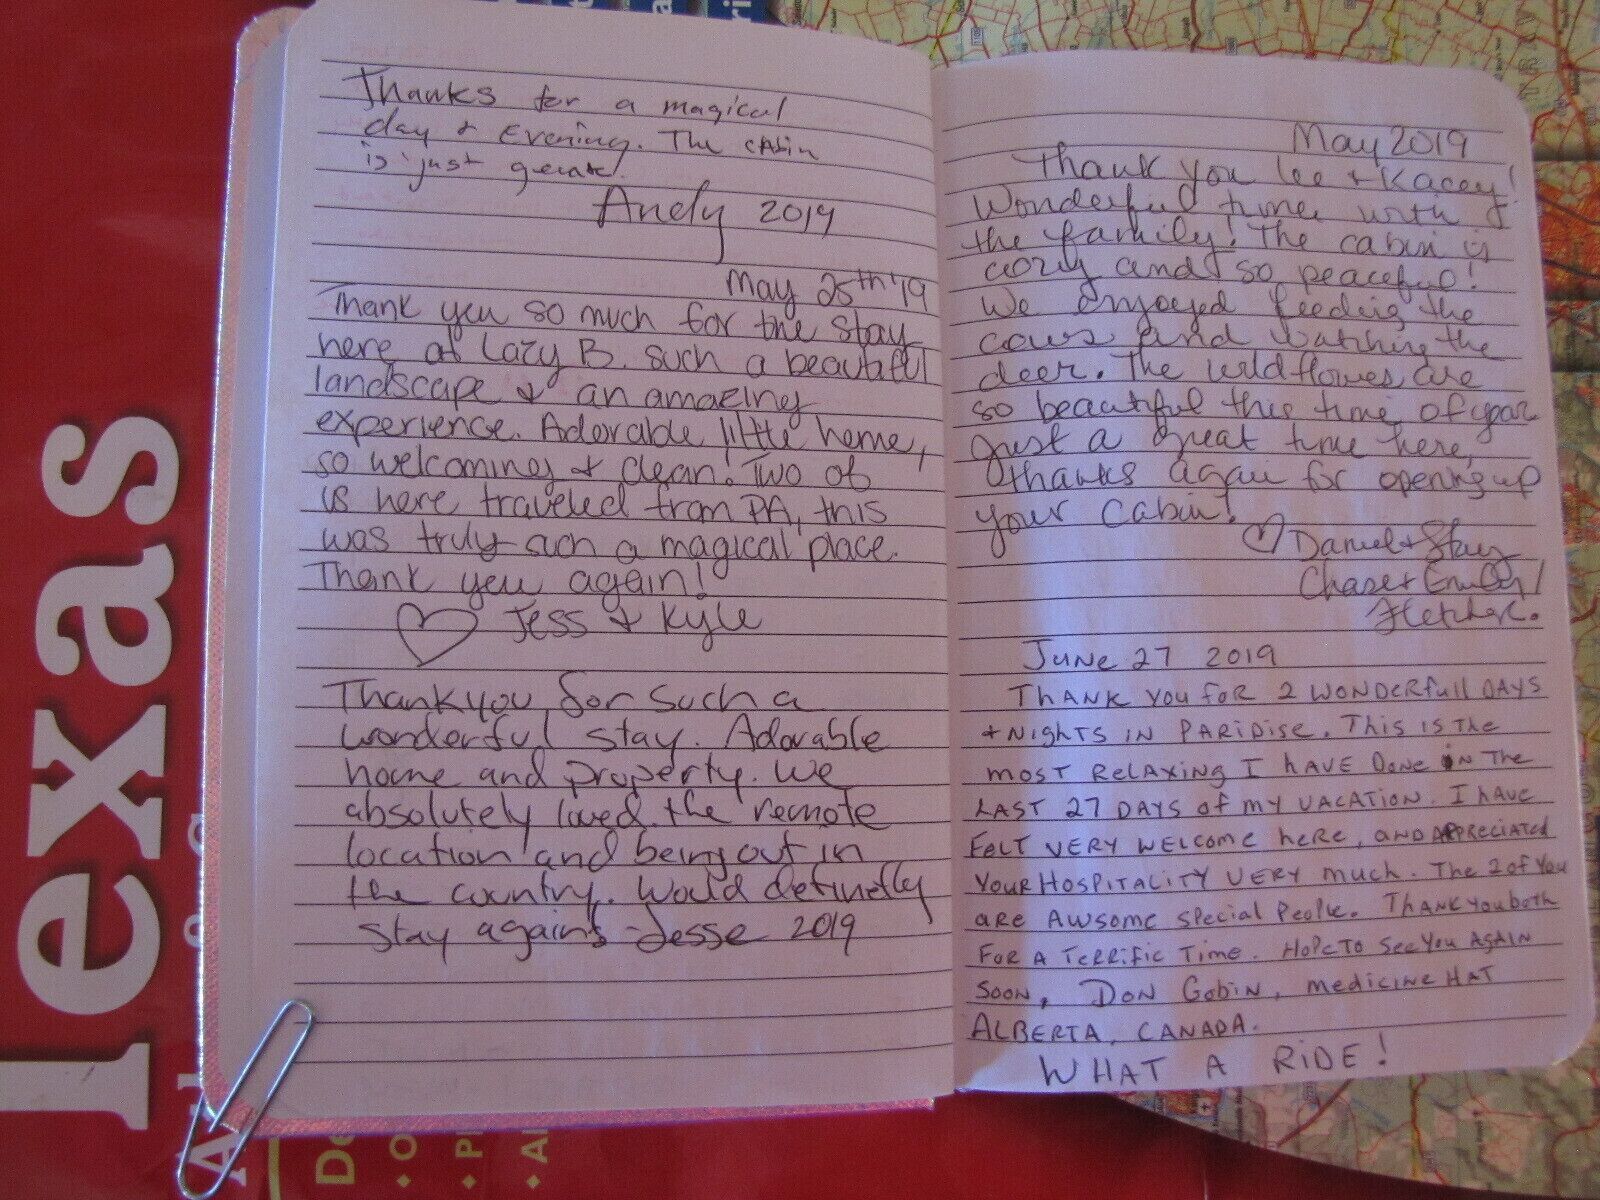 Thanks for a magical
day & Evening. The cabin
is just great.
Andy 2019
May 25th '19
Thank you so much for the stay
here at Lazy B. such a beautiful
landscape & an amazing
experience. Adorable little home,
so welcoming & clean! Two of
us here traveled from PA, this
was truly such a magical place.
Thank you again!
Jess & Kyle
Thankyou for such a
wonderful stay. Adorable
home and property. We
absolutely loved the remote
location and being out in
the country. Would definetly
stay again! -Jesse 2019
May 2019
Thank you Lee + Kacey!
Wonderful time with
the family! The cabin is
cozy and so peaceful!
We enjoyed feeding the
cows and watching the
deer. The wildflowers are
so beautiful this time of year
Just a great time here,
thanks again for opening up
your Cabin!
Daniel + Stacy
Chase + Emily
Fletcher.
June 27 2019
THANK YOU FOR 2 WONDERfull DAYS
+ NIGHTS IN PARIDISE. THIS IS THE
MOST RELAXING I HAVE DONE IN THE
LAST 27 DAYS OF MY VACATION. I HAVE
FELT VERY WELCOME HERE, AND APRECIATED
YOUR HOSPITALITY VERY MUCH. THE 2 OF YOU
ARE AWSOME SPECIAL PEOPLE. THANK YOU BOTH
FOR A TERRIFIC TIME. HOPE TO SEE YOU AGAIN
SOON, DON GOBIN, MEDICINE HAT
ALBERTA, CANADA.
WHAT A RIDE!
exas